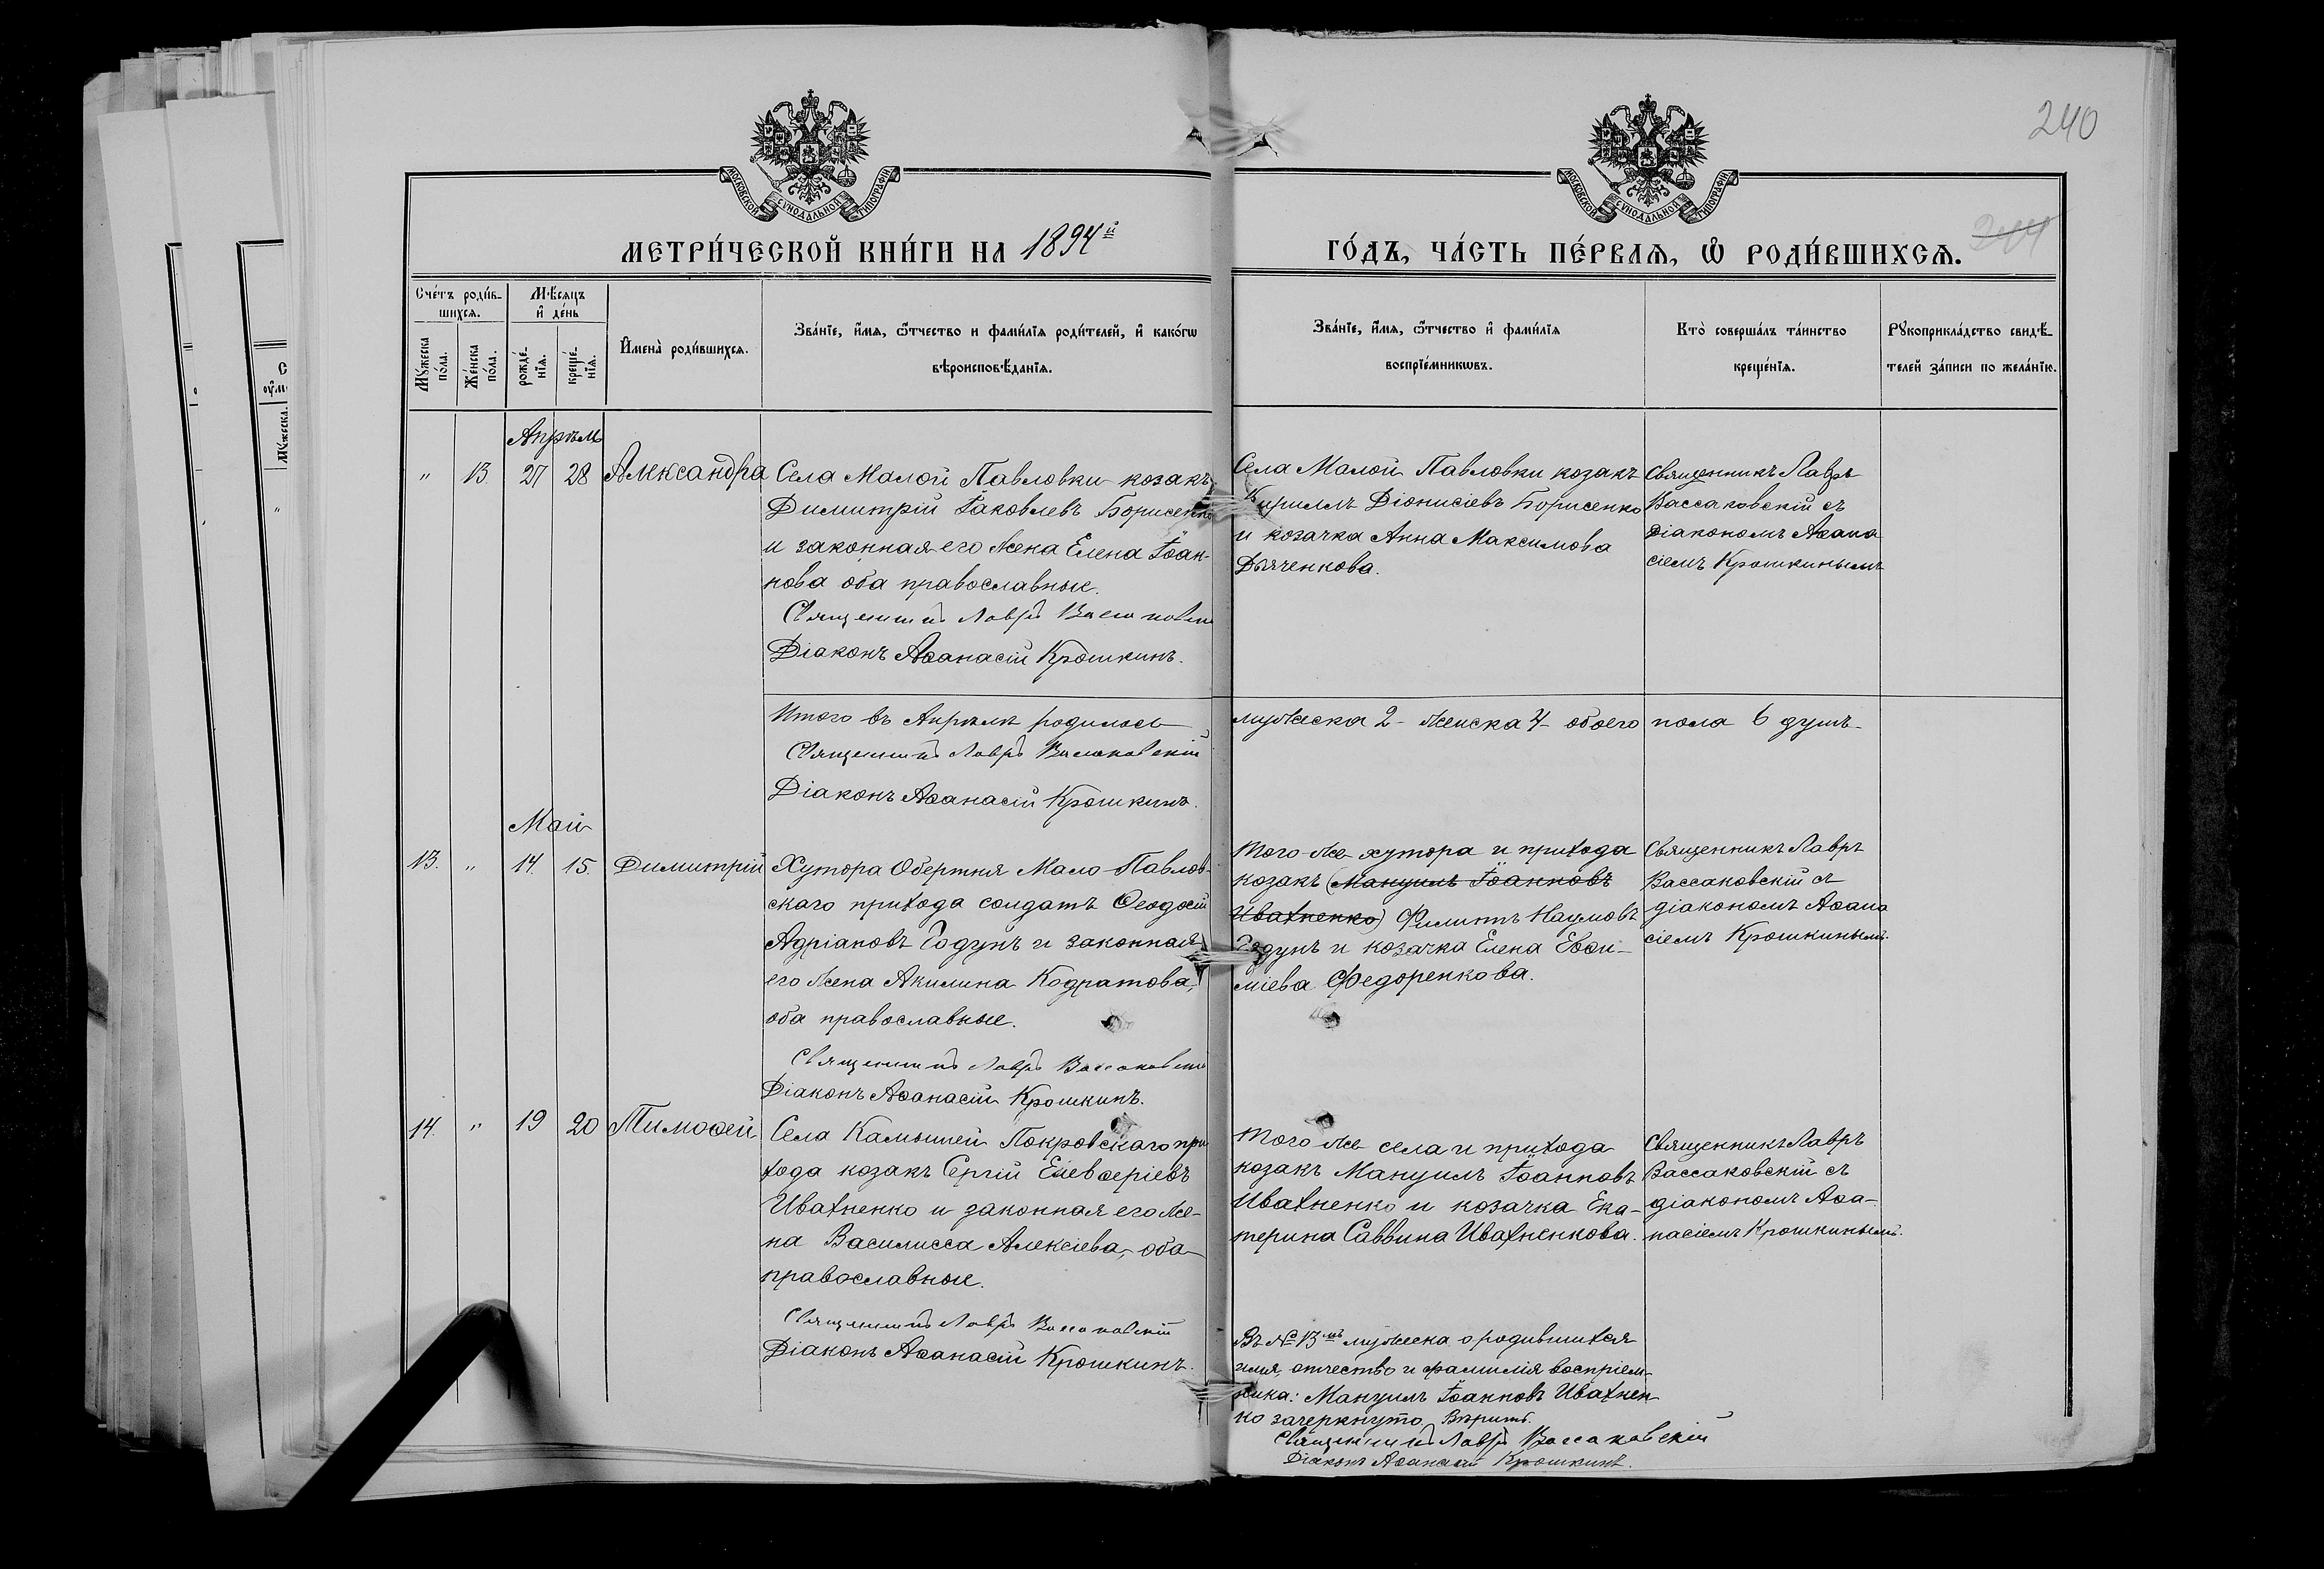 240
МОСКОВСКОЙ СѴНОДАЛЬНОЙ ТИПОГРАФІИ
МОСКОВСКОЙ СѴНОДАЛЬНОЙ ТИПОГРАФІИ
МЕТРИ́ЧЕСКОЙ КНИ́ГИ НА 1894й
ГО́ДЪ, ЧА́СТЬ ПЕ́РВАѦ, Ѽ РОДИ́ВШИХСѦ.
244
Сче́тъ роди́в-
шихсѧ.
Мꙋ́жеска
по́ла.
Же́нска
по́ла.
Мѣ́сѧцъ
и҆ де́нь
рожде́-
нїѧ.
креще́-
нїѧ.
И҆мена̀ роди́вшихсѧ.
Зва́нїе, и҆́мѧ, ѻ҆́тчество и фами́лїѧ роди́телей, и҆ како́гѡ
вѣроисповѣ́данїѧ.
Зва́нїе, и҆́мѧ, ѻ҆́тчество и҆ фами́лїѧ
воспрїе́мникѡвъ.
Кто̀ соверша́лъ та́инство
креще́нїѧ.
Рꙋкоприкла́дство свидѣ́-
телей за́писи по жела́нїю.
Апрѣль
" 13. 27 28 Александра
Села Малой Павловки козакъ
Димитрій Іаковлевъ Борисенко
и законная его жена Елена Іоан-
нова оба православные.
Священникъ Лавръ
Діаконъ Аѳанасій Крошкинъ.
Села Малой Павловки козакъ
Кириллъ Діонисіевъ Борисенко
и козачка Анна Максимова
Дяченкова.
Священникъ Лавръ
Вассаковскій съ
діакономъ Аѳана
сіемъ Крошкинымъ
Итого въ Апрѣлѣ родилось мужеска 2 - женска 4 - обоего пола 6 душъ-
Священникъ Лавръ Вассаковскій
Діаконъ Аѳанасій Крошкинъ.
Май
13. " 14. 15. Димитрій
Хутора Обертня Мало-Павлов-
скаго прихода солдатъ Ѳеодосій
Адріановъ Годунъ и законная
его жена Акилина Кодратова,
оба православные.
Священникъ Лавръ Вассаковскій
Діаконъ Аѳанасій Крошкинъ.
Того-же хутора и прихода
козакъ (Мануилъ Іоанновъ
Ивахненко) Филиппъ Наумовъ
Годунъ и козачка Елена Евѳи-
міева Федоренкова.
Священникъ Лавръ
Вассаковскій съ
діакономъ Аѳана
сіемъ Крошкинымъ.
14. " 19 20 Тимоѳей
Села Камышей Покровскаго при
хода козакъ Сергій Елевѳеріевъ
Ивахненко и законная его же-
на Василисса Алексіева, оба
православные.
Священникъ Лавръ Вассаковскій
Діаконъ Аѳанасій Крошкинъ.
Того же села и прихода
козакъ Мануилъ Іоанновъ
Ивахненко и козачка Ека-
терина Саввина Ивахненкова.
Священникъ Лавръ
Вассаковскій съ
діакономъ Аѳа-
насіемъ Крошкинымъ.
Въ № 13мъ мужеска о родившихся
имя, отчество и фамилія воспріем-
ника: Мануилъ Іоанновъ Ивахнен
ко зачеркнуто. Вѣрить.
Священникъ Лавръ Вассаковскій
Діаконъ Аѳанасій Крошкинъ.